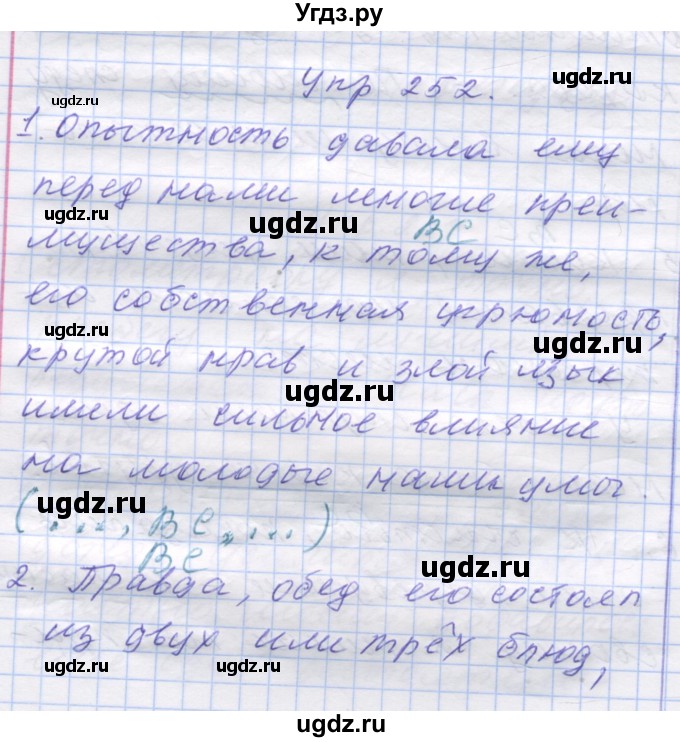 Угдз.ру
Упр 252.
ugdz.ru
ugdz.ru
1. Опытность давала ему
перед нами многие преи-
ugdz.ru
ugdz.ru
ВС
мущества, к тому же,
его собственная угрюмость,
ugdz.ru
ugdz.ru
крутой нрав и злой язык
ugdz.ru
имели сильное влияние
на молодые наши умы.
ugdz.ru
(..., ВС, ...)
ВС
ugdz.ru
2. Правда, обед его состоял
из двух или трёх блюд,
ugdz.ru
ugdz.ru
ugdz.ru